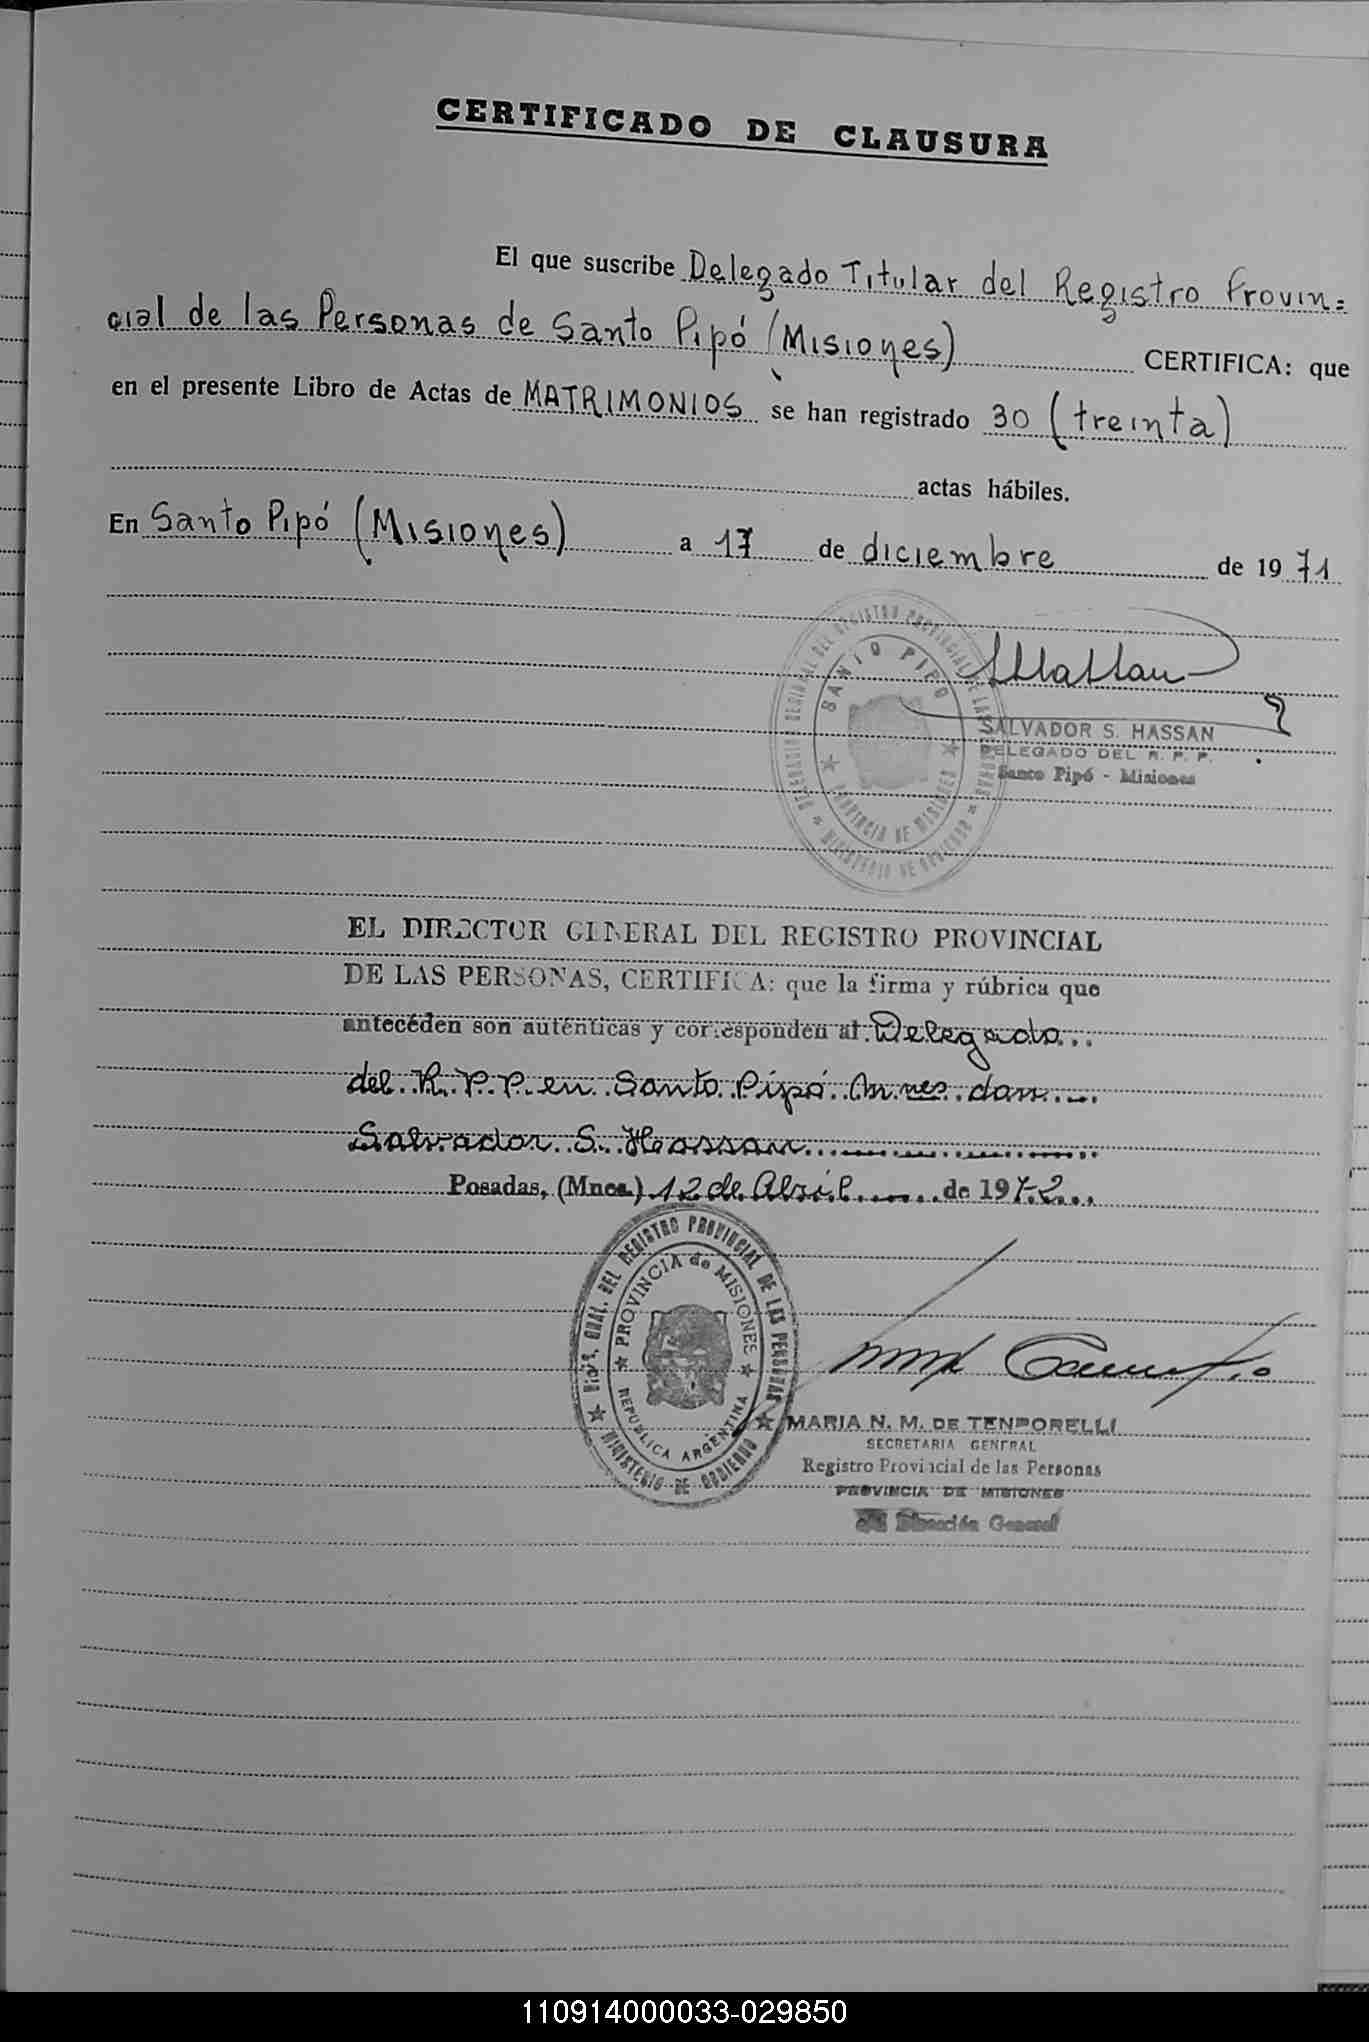 CERTIFICADO DE CLAUSURA
El que suscribe Delegado Titular del Registro Provin=
cial de las Personas de Santo Pipó (Misiones) CERTIFICA: que
en el presente Libro de Actas de MATRIMONIOS se han registrado 30 (treinta)
actas hábiles.
En Santo Pipó (Misiones) a 17 de diciembre de 1971
SANTO PIPO
PROVINCIA DE MISIONES
MINISTERIO DE GOBIERNO
SALVADOR S. HASSAN
DELEGADO DEL R. P. P.
Santo Pipó - Misiones
EL DIRECTOR GENERAL DEL REGISTRO PROVINCIAL
DE LAS PERSONAS, CERTIFICA: que la firma y rúbrica que
anteceden son auténticas y corresponden al Delegado
del R. P. P. en Santo Pipó Mnes. don
Salvador S. Hassan
Posadas, (Mnes.) 12 de Abril de 1972
GRAL. DEL REGISTRO PROVINCIAL DE LAS PERSONAS
PROVINCIA de MISIONES
REPUBLICA ARGENTINA
MINISTERIO DE GOBIERNO
MARIA N. M. DE TEMPORELLI
SECRETARIA GENERAL
Registro Provincial de las Personas
PROVINCIA DE MISIONES
Dirección General
110914000033-029850